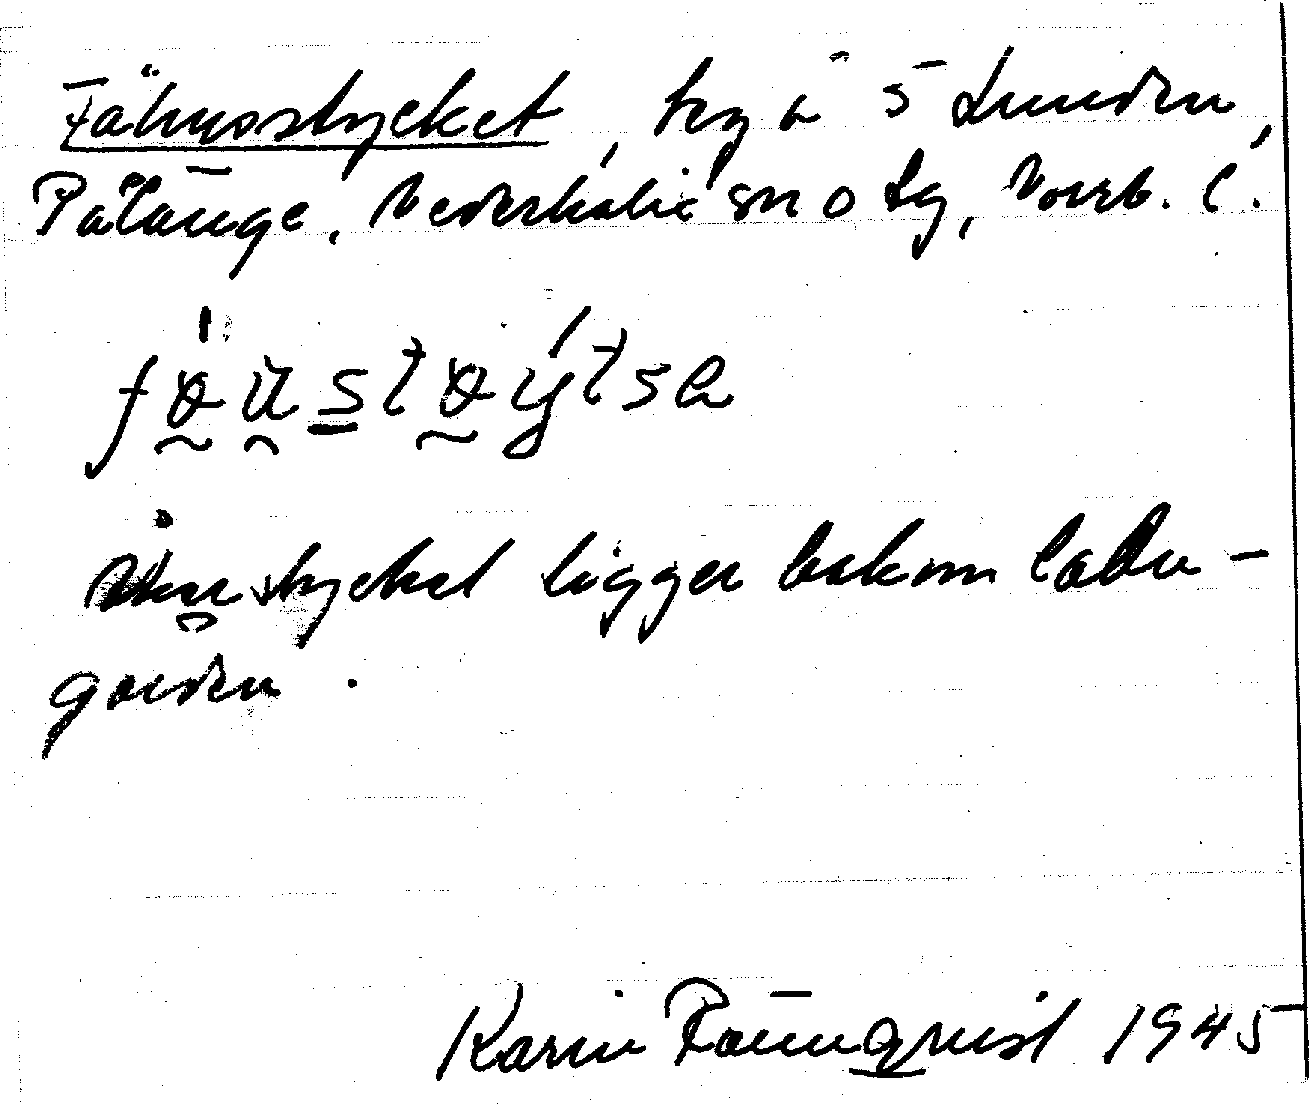 Fähusstycket, hg å 5 Lunden,
Pålänge, Nederkalix sn o tg, Norrb. l.
fǫu̯stǫýtsa
Åkerstycket ligger bakom ladu-
gården.
Karin Rönnquist 1945